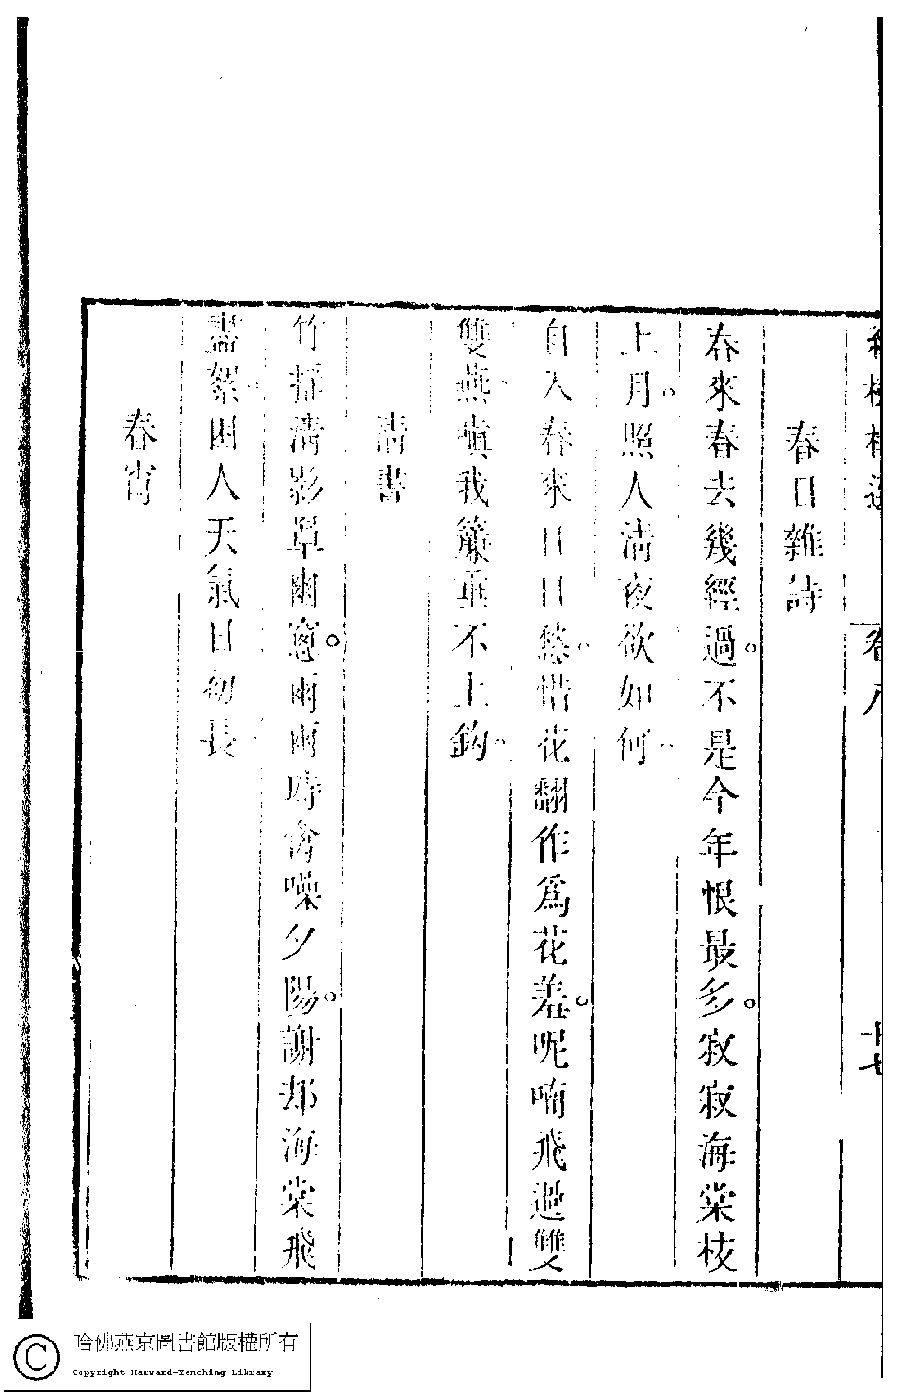 紅樹樓選 卷八 十七
春日雜詩
春來春去幾經過。不是今年恨最多。寂寂海棠枝
上月。照人清夜欲如何。
自入春來日日愁。惜花翻作爲花羞。呢喃飛過雙
雙燕。嗔我簾垂不上鈎。
清晝
竹搖清影罩幽窻。兩兩時禽噪夕陽。謝却海棠飛
盡絮。困人天氣日初長。
春宵
哈佛燕京圖書館版權所有
Copyright Harvard-Yenching Library